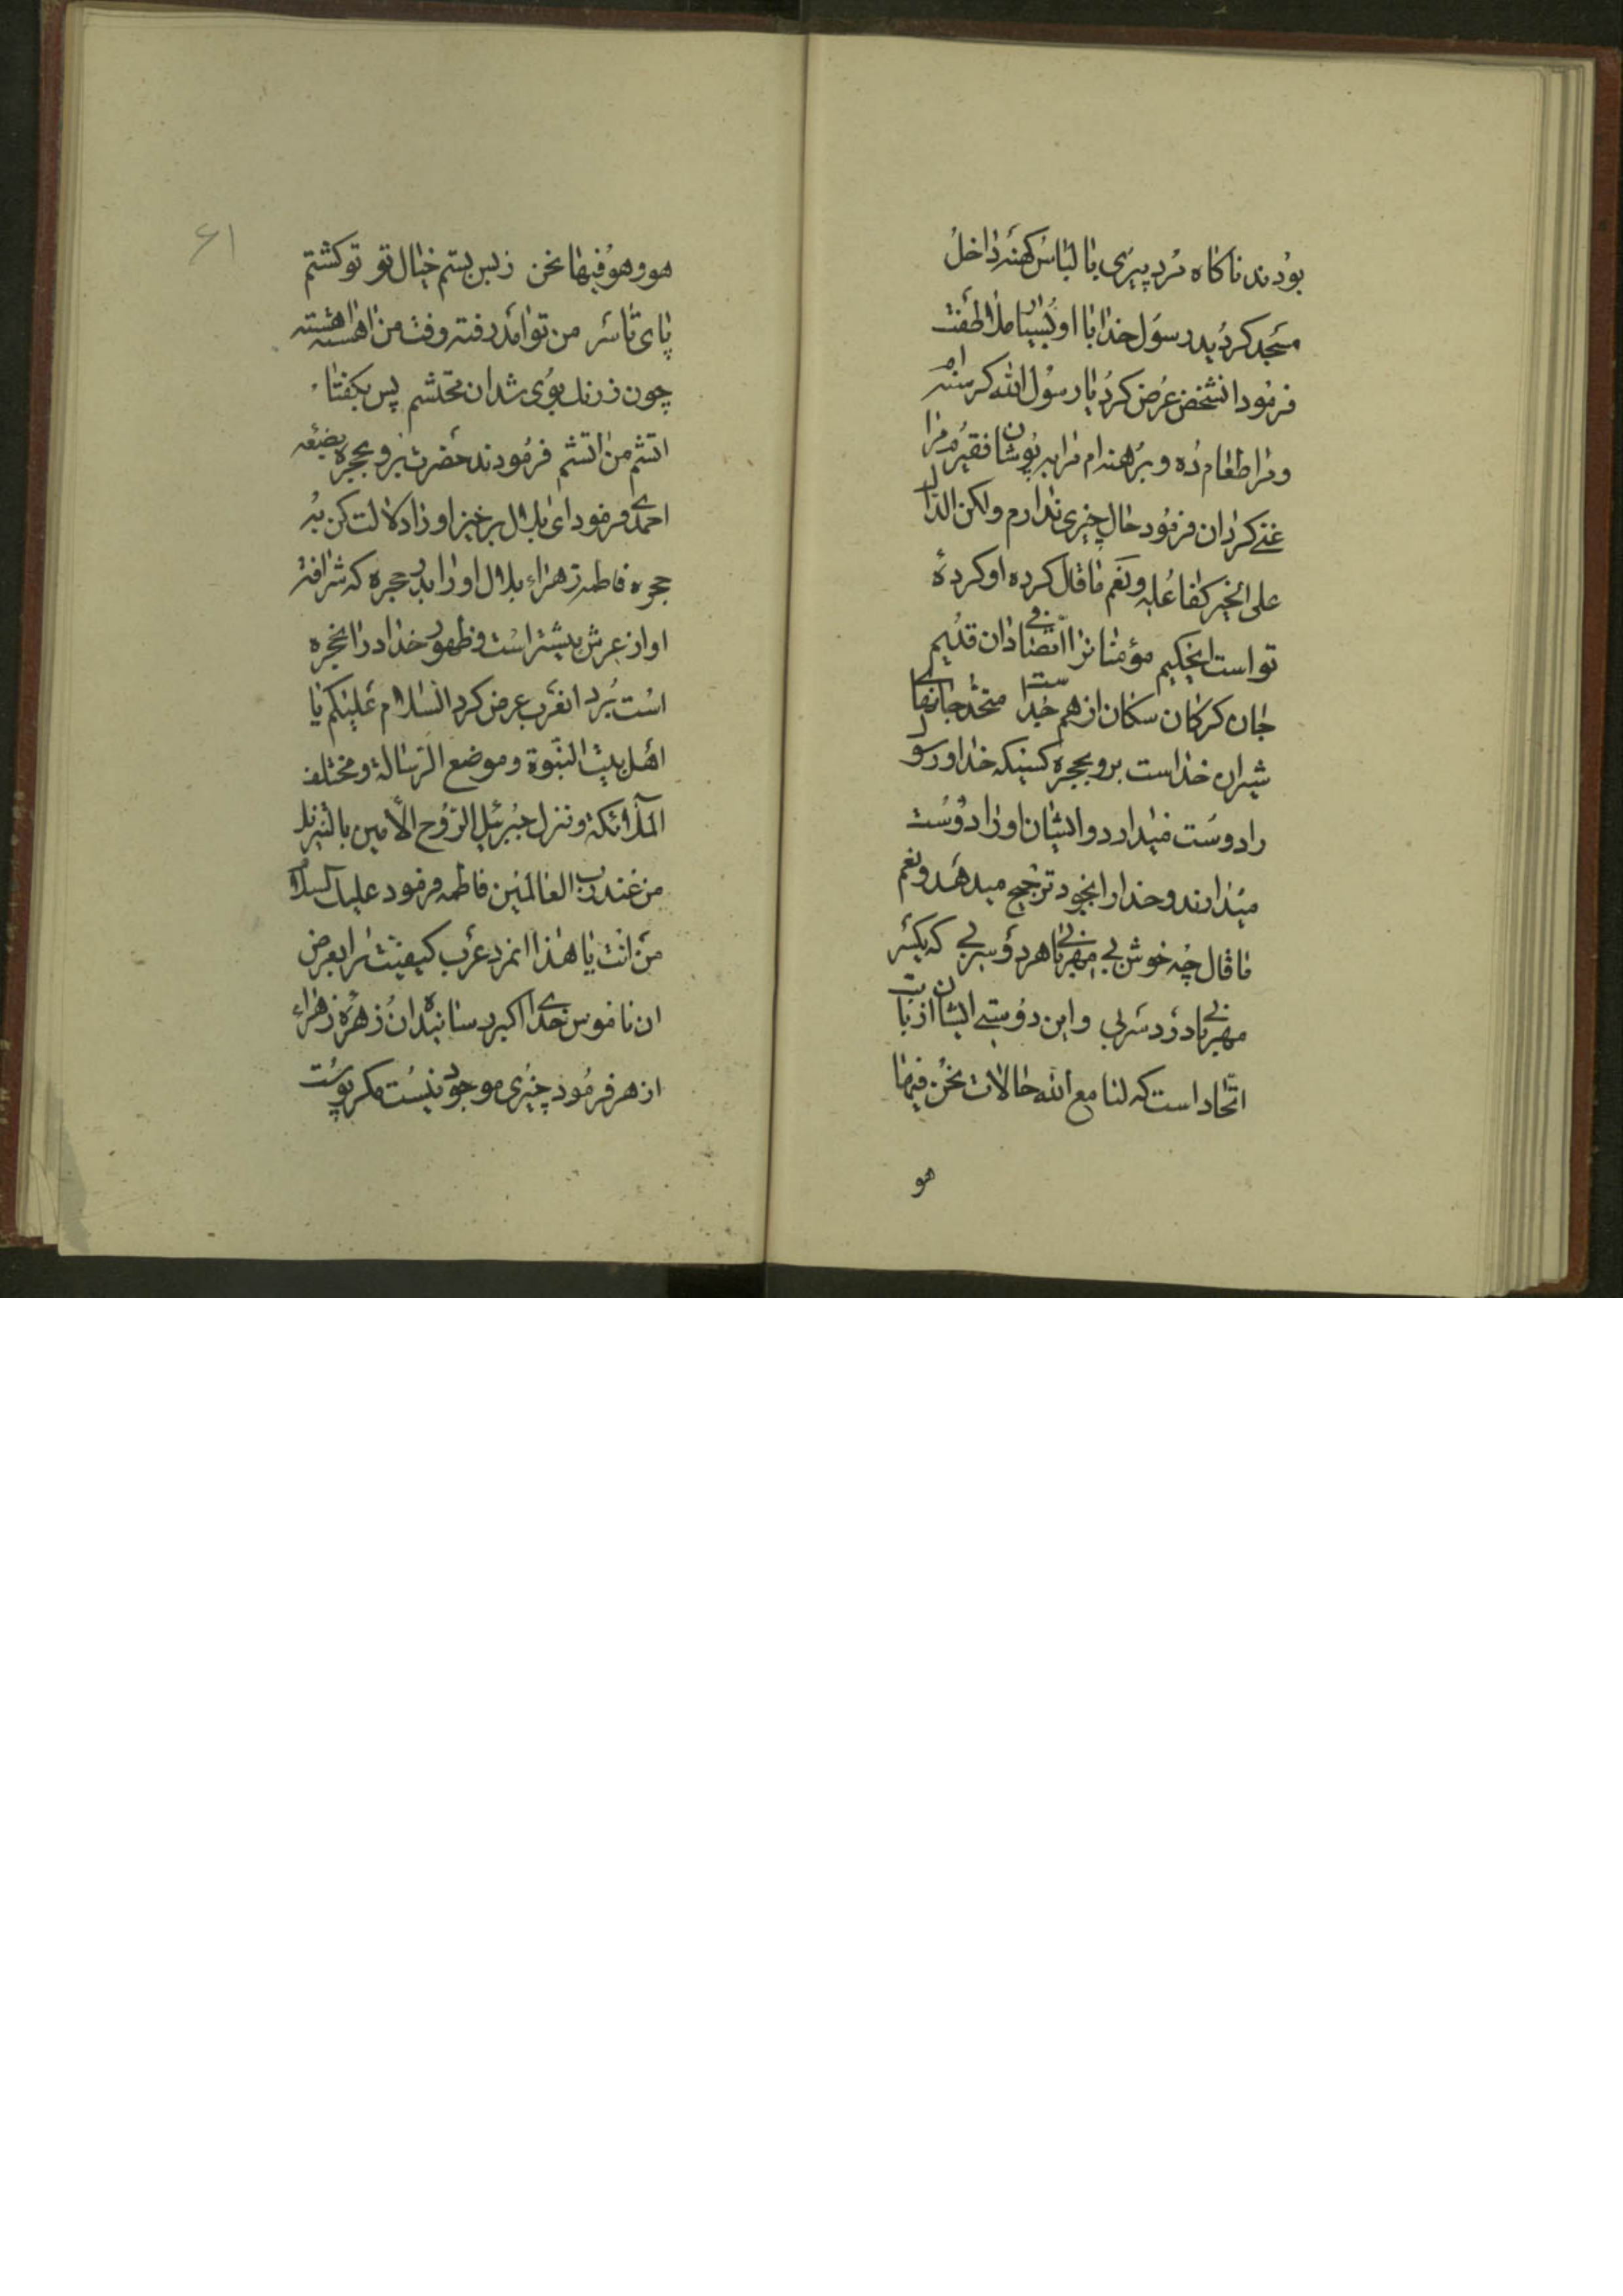 بودند ناکاه مرد پیری با لباس کهنه داخل
مسجد کردید رسول خدا با او بسیار ملاطفت
فرمود انشخص عرض کرد یا رسول الله کرسنه ام
مرا طعام ده و برهنه ام مرا بپوشان فقیرم مرا
غنی کردان فرمود حال چیزی ندارم ولکن الدال
علی الخیر کفاعله و نعم ما قال کرده او کرده
تو است ایحکیم مؤمنانرا اتصالی دان قدیم
جان کرکان سکان از هم جداست متحد جانهای
شیران خداست برو بحجره کسیکه خدا و رسول
را دوست میدارد و ایشان او را دوست
میدارند و خدا را بخود ترجیح میدهد و نعم
ما قال چه خوش بی مهربانی هر دو سر بی که یکسر
مهربانی درد سر بی و این دوستی ایشان از بابت
اتحاد است که لنا مع الله حالات نحن فیها
هو
۶۱
هو و هو فیها نحن ز بس بستم خیال تو تو کشتم
پای تا سر من تو امد رفته رفته رفت من اهسته اهسته
چون زرنک بوی شد ان محتشم پس بکفتا
اتشم من اتشم فرمودند حضرت برو بحجره بضعه
احمدی فرمود ای بلال برخیز او را دلالت کن به
حجره فاطمه زهراء بلال او را بدر حجره که شرافت
او از عرش بیشتر است و ظهور خدا در انحجره
است برد انعرب عرض کرد السلام علیکم یا
اهل بیت النبوة و موضع الرسالة و مختلف
الملائکة و تنزل جبرئیل الروح الامین بالتنزیل
من عند رب العالمین فاطمه فرمود علیک السلام
من انت یا هذا انمرد عرب کیفیت را بعرض
ان ناموس خدای اکبر رسانیده ان زهره زهراء
ازهر فرمود چیزی موجود نیست مکر پوست